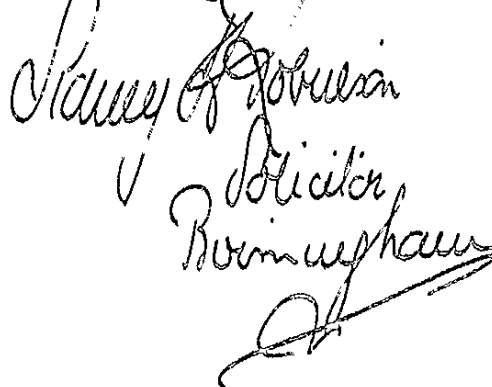 Sidney H Robinson
Solicitor
Birmingham